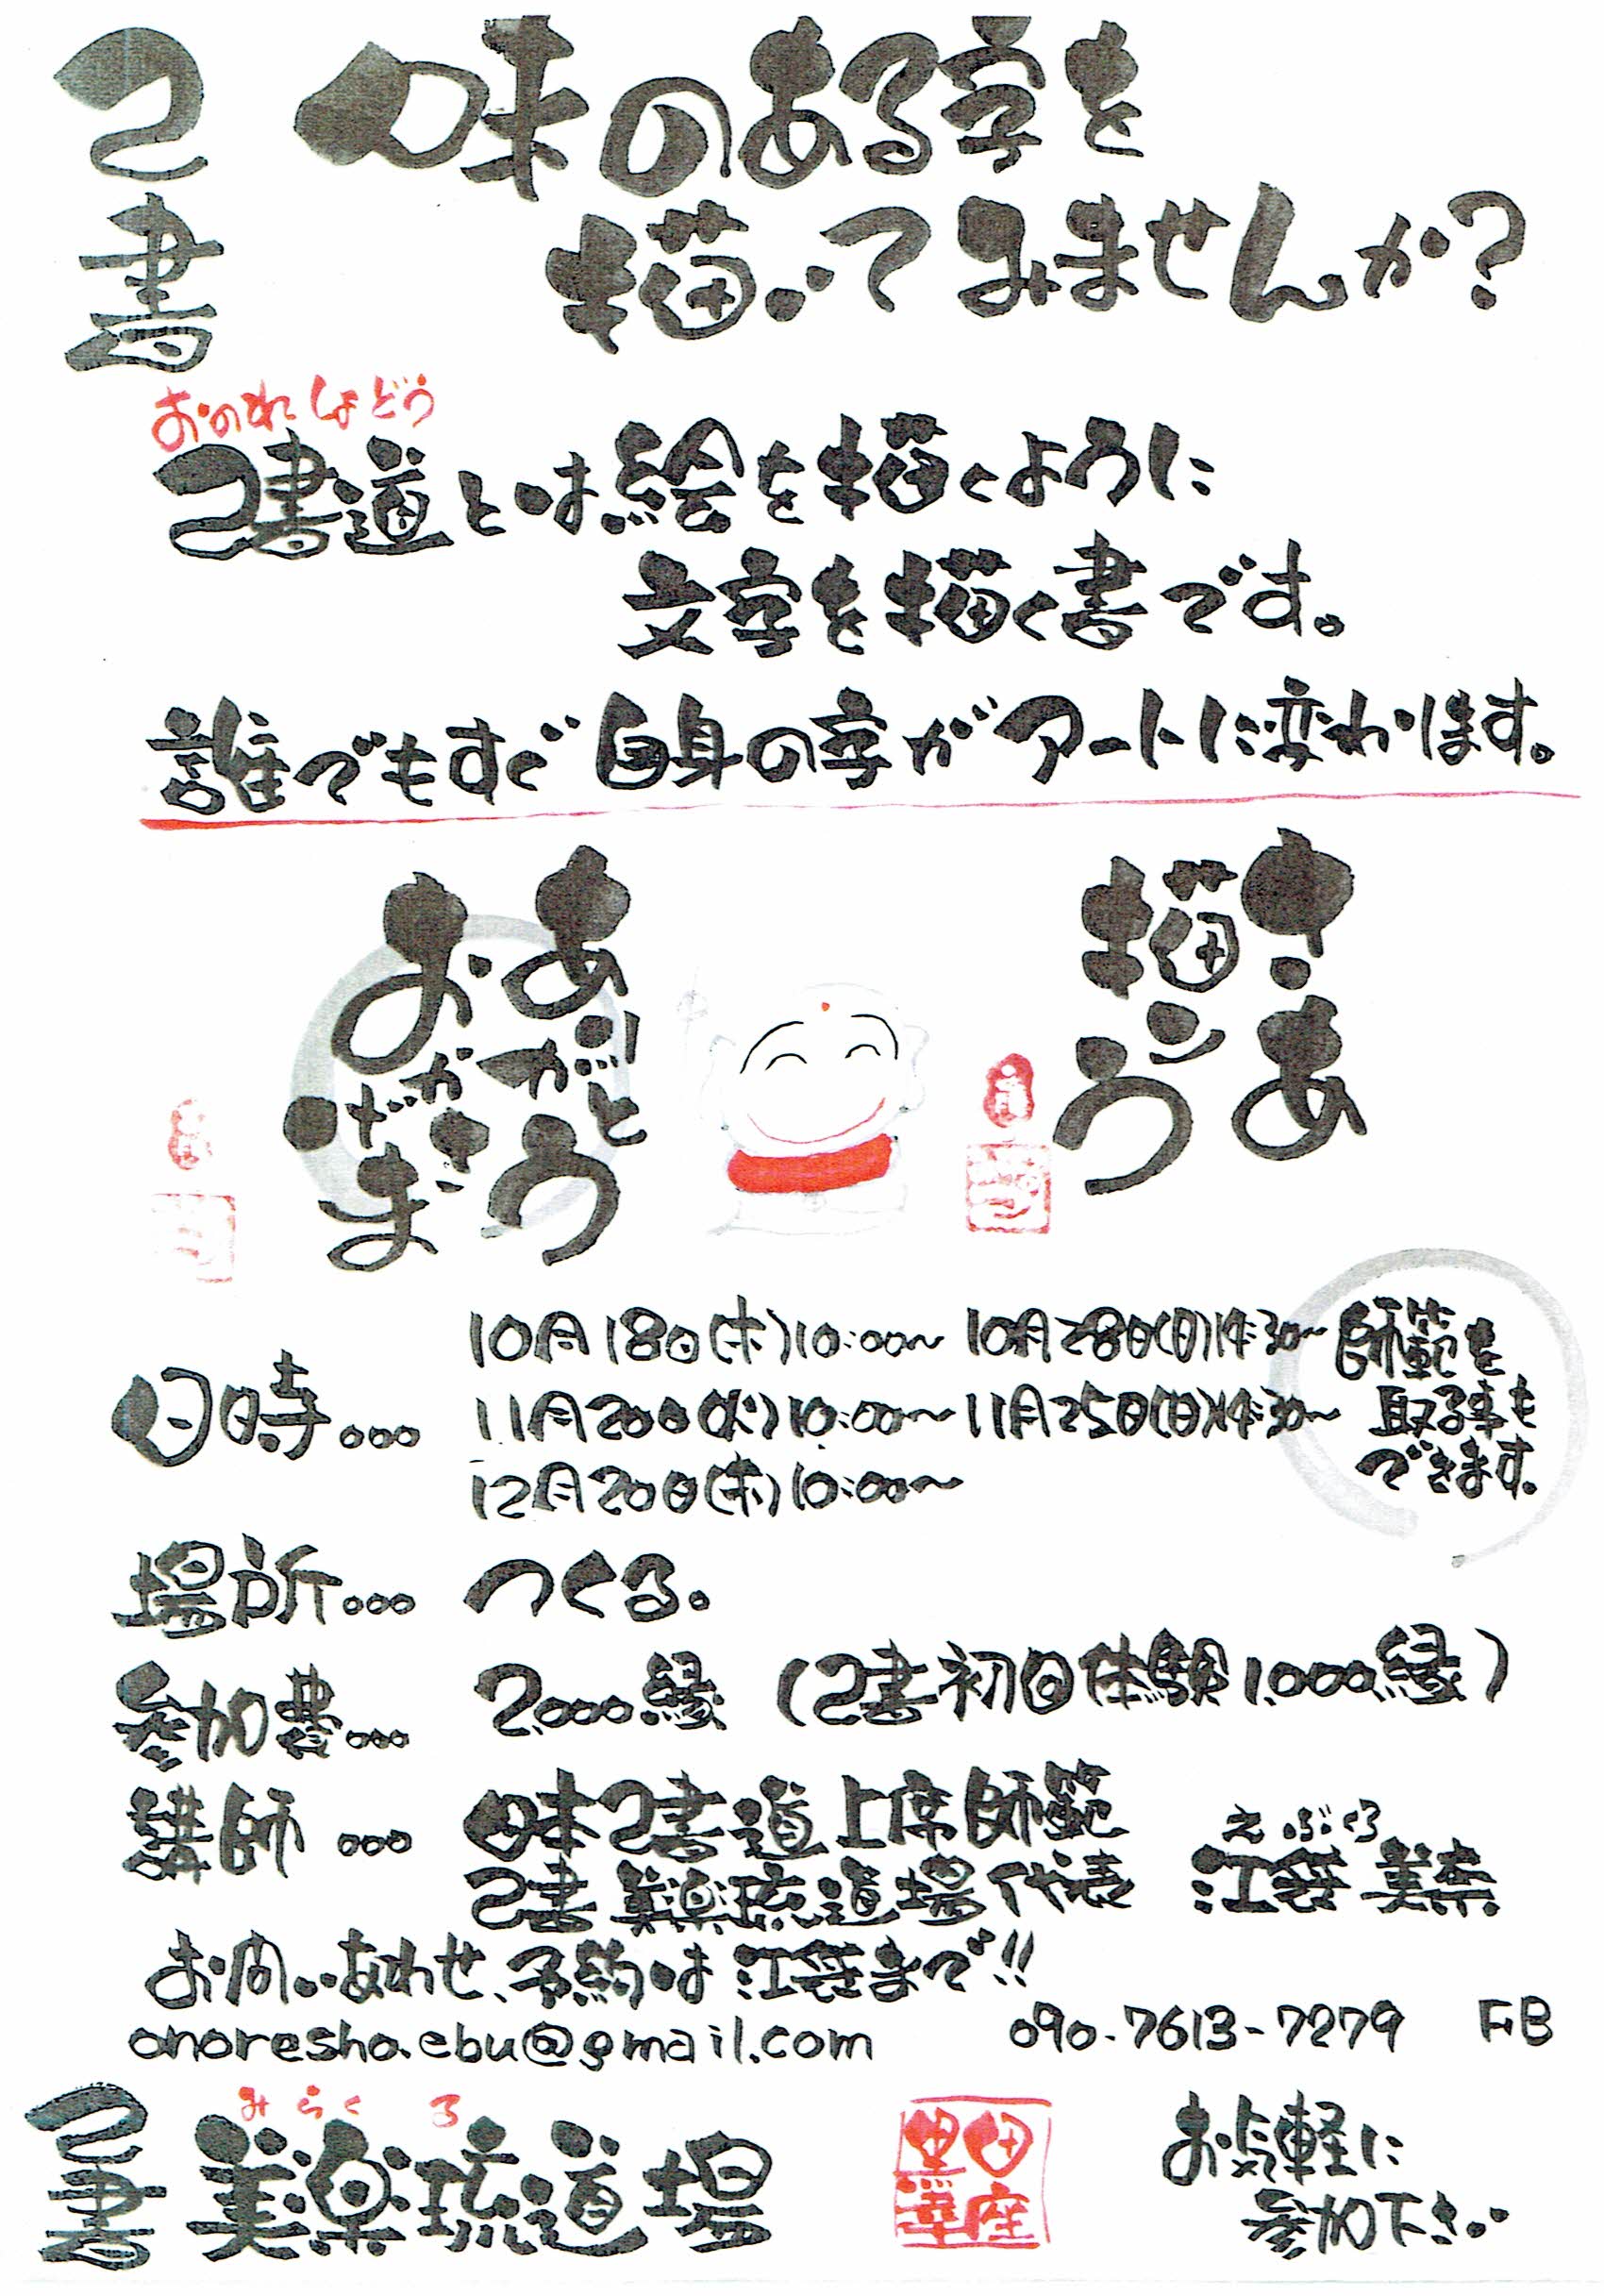 己書
味のある字を
描いてみませんか?
おのれしょどう
己書道とは絵を描くように
文字を描く書です。
誰でもすぐ自身の字がアートに変わります。
ありがとう
おかげさま
さぁ
描こう
日時… 10月18日(木)10:00〜 10月28日(日)14:30〜
11月20日(火)10:00〜 11月25日(日)14:30〜
12月20日(木)10:00〜
師範を
取る事も
できます。
場所… つくる。
参加費… 2,000縁 (己書初回体験1,000縁)
講師… 日本己書道上席師範
己書美楽琉道場代表
えぶくろ
江袋美奈
お問いあわせ、予約は江袋まで!!
onoresho.ebu@gmail.com 090-7613-7279 FB
みらくる
己書美楽琉道場
お気軽に
参加下さい